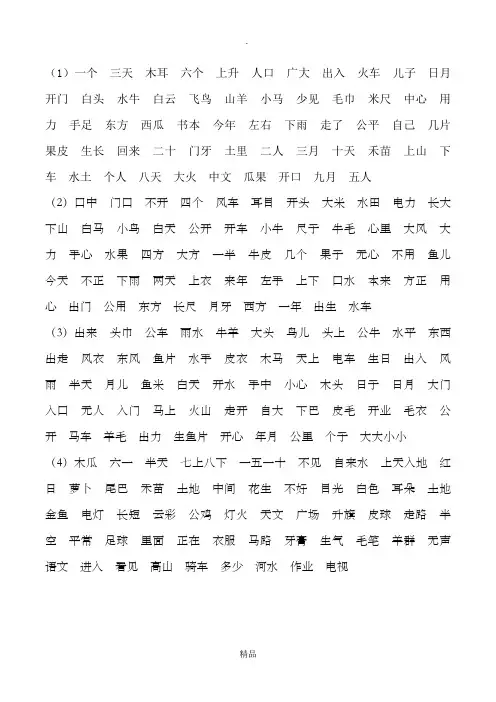 （1）一个 三天 木耳 六个 上升 人口 广大 出入 火车 儿子 日月
开门 白头 水牛 白云 飞鸟 山羊 小马 少见 毛巾 米尺 中心 用
力 手足 东方 西瓜 书本 今年 左右 下雨 走了 公平 自己 几片
果皮 生长 回来 二十 门牙 土里 二人 三月 十天 禾苗 上山 下
车 水土 个人 八天 大火 中文 瓜果 开口 九月 五人
（2）口中 门口 不开 四个 风车 耳目 开头 大米 水田 电力 长大
下山 白马 小鸟 白天 公开 开车 小牛 尺子 牛毛 心里 大风 大
力 手心 水果 四方 大方 一半 牛皮 几个 果子 无心 不用 鱼儿
今天 不正 下雨 两天 上衣 来年 左手 上下 口水 本来 方正 用
心 出门 公用 东方 长尺 月牙 西方 一年 出生 水车
（3）出来 头巾 公车 雨水 牛羊 大头 鸟儿 头上 公牛 水平 东西
出走 风衣 东风 鱼片 水手 皮衣 木马 天上 电车 生日 出入 风
雨 半天 月儿 鱼米 白天 开水 手中 小心 木头 日子 日月 大门
入口 无人 入门 马上 火山 走开 自大 下巴 皮毛 开业 毛衣 公
开 马车 羊毛 出力 生鱼片 开心 年月 公里 个子 大大小小
（4）木瓜 六一 半天 七上八下 一五一十 不见 自来水 上天入地 红
日 萝卜 尾巴 禾苗 土地 中间 花生 不好 目光 白色 耳朵 土地
金鱼 电灯 长短 云彩 公鸡 灯火 天文 广场 升旗 皮球 走路 半
空 平常 足球 里面 正在 衣服 马路 牙膏 生气 毛笔 羊群 无声
语文 进入 看见 高山 骑车 多少 河水 作业 电视
精品